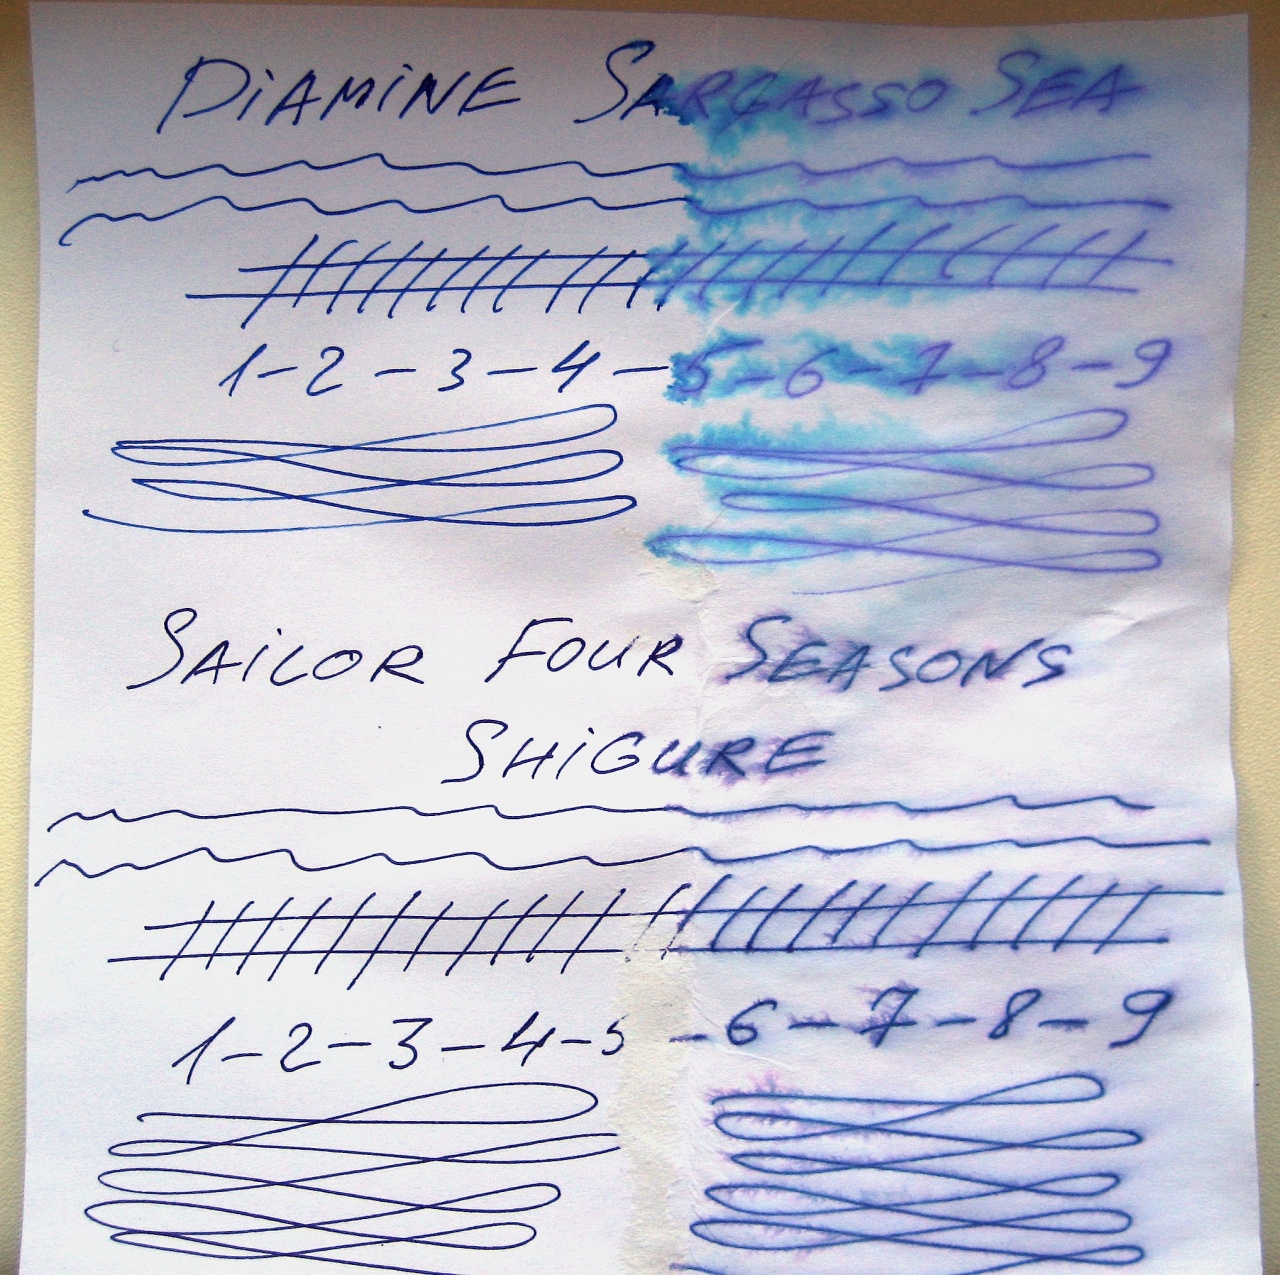 DiAMiNE SARGASSO SEA
1-2-3-4-5-6-7-8-9
SAiLOR FOUR SEASONS
SHiGURE
1-2-3-4-5-6-7-8-9